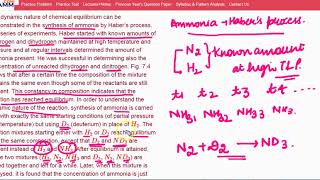 Practice Problem Practice Test Lectures+Notes Previous Year's Question Paper Syllabus & Pattern Analysis Contact Us
dynamic nature of chemical equilibrium can be
onstrated in the synthesis of ammonia by Haber's process.
series of experiments, Haber started with known amounts of
drogen and dihydrogen maintained at high temperature and
sure and at regular intervals determined the amount of
monia present. He was successful in determining also the
centration of unreacted dihydrogen and dinitrogen. Fig. 7.4
ws that after a certain time the composition of the mixture
ains the same even though some of the reactants are still
ent. This constancy in composition indicates that the
tion has reached equilibrium. In order to understand the
amic nature of the reaction, synthesis of ammonia is carried
with exactly the same starting conditions (of partial pressure
temperature) but using D2 (deuterium) in place of H2. The
tion mixtures starting either with H2 or D2 reach
the same composition, except that D2 and ND3 are
ent instead of H2 and NH3. After equilibrium is attained,
e two mixtures (H2, N2, NH3 and D2, N2, ND3) are
d together and left for a while. Later, when this mixture is
ysed, it is found that the concentration of ammonia is just
Ammonia - Haber's process.
N2
H2
Known amount
at high T & P.
t1 t2 t3 t4 ....
NH3 NH3 NH3 NH3.
N2 + D2 → ND3.